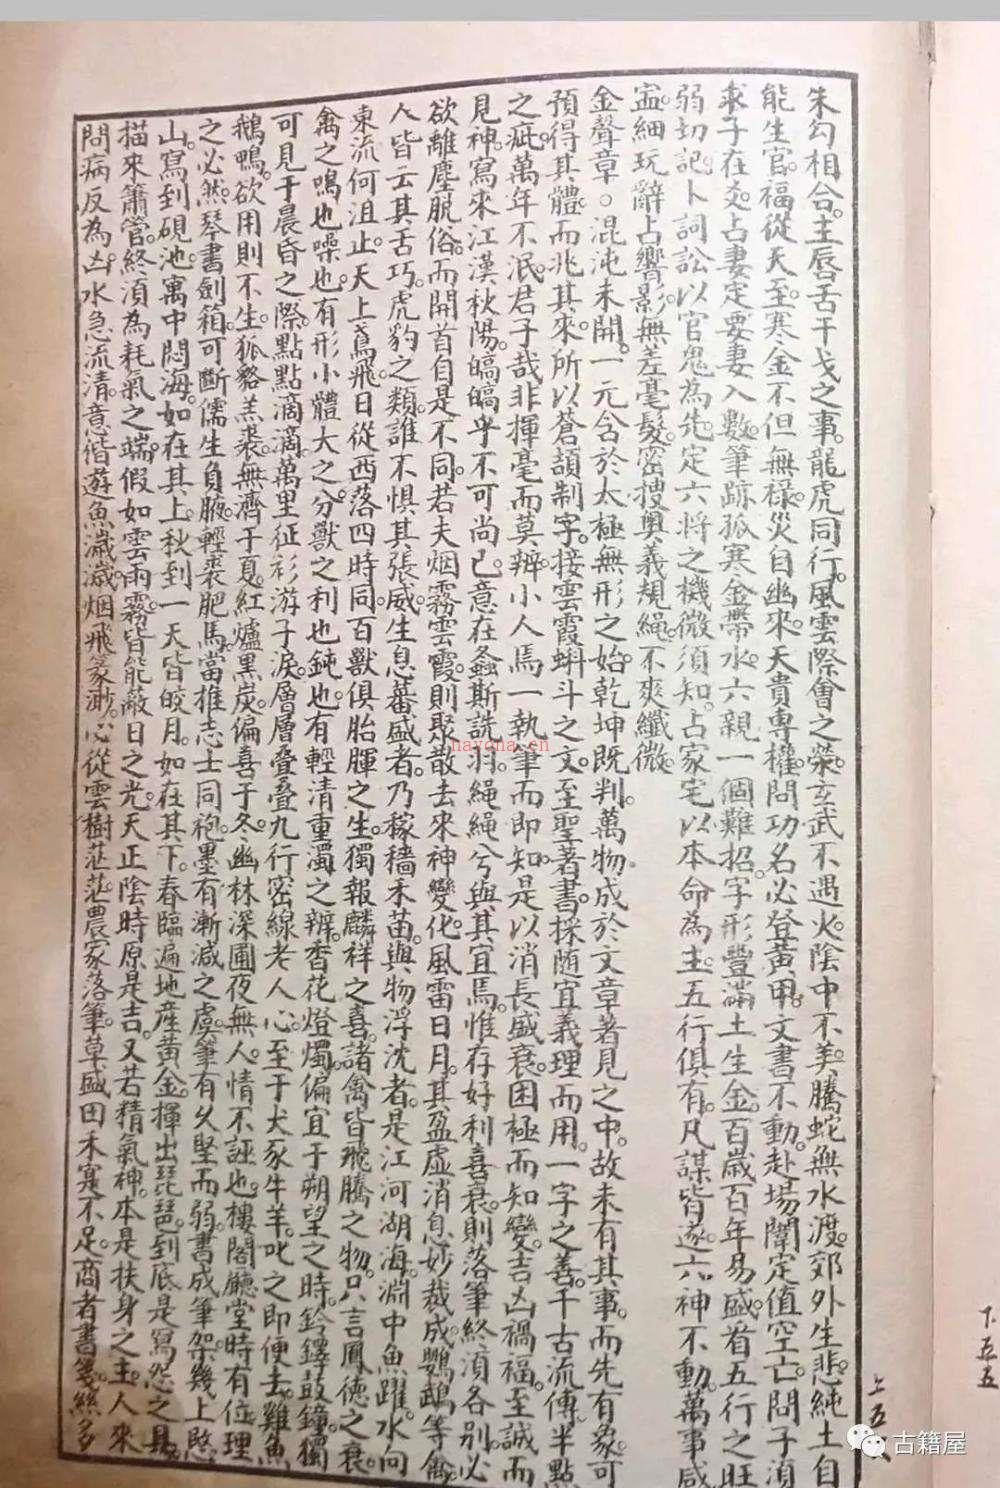 朱勾相合。主唇舌干戈之事。龍虎同行。風雲際會之榮。玄武不遇火。陰中不美。騰蛇無水渡。郊外生悲。純土自
能生官。福從天至。寒金不但無祿。災自幽來。天貴專權。問功名必登黃甲。文書不動。赴場闈定值空亡。問子須
求子在爻。占妻定要妻入數。筆跡孤寒金帶水。六親一個難招。字形豐滿土生金。百歲百年易盛。看五行之旺
弱切記。卜詞訟以官鬼為先。定六將之機微須知。占家宅以本命為主。五行俱有。凡謀皆遂。六神不動。萬事咸
寍。細玩辭占。響影無差毫髮。密搜奧義。規繩不爽纖微。
金聲章。混沌未開。一元含於太極無形之始。乾坤既判。萬物成於文章著見之中。故未有其事。而先有象。可
預得其體。而兆其來。所以蒼頡制字。接雲霞蝌斗之文。至聖著書。採隨宜義理而用。一字之善。千古流傳。半點
之疵。萬年不泯。君子哉非揮毫而莫辨。小人焉一執筆而即知。是以消長盛衰。困極而知變。吉凶禍福。至誠而
見神。寫來江漢秋陽。皜皜乎不可尚已。意在螽斯詵羽。繩繩兮與其宜焉。惟存好利喜哀。則落筆終須各別。必
欲離塵脫俗。而開首自是不同。若夫烟霧雲霞。則聚散去來神變化。風雷日月。其盈虛消息妙裁成。鸚鵡等禽。
人皆云其舌巧。虎豹之類。誰不懼其張威。生息蕃盛者。乃稼穡禾苗。與物浮沈者。是江河湖海。淵中魚躍。水向
東流何沮止。天上鳶飛。日從西落四時同。百獸俱胎腪之生。獨報麟祥之喜。諸禽皆飛騰之物。只言鳳德之衰。
禽之鳴也噪也。有形小體大之分。獸之利也鈍也。有輕清重濁之辨。香花燈燭。偏宜于朔望之時。鈴鐸鼓鐘。獨
可見于晨昏之際。點點滴滴。萬里征衫游子淚。層層叠叠。九行密線老人心。至于犬豕牛羊。叱之即便去。雞魚
鵝鴨。欲用則不生。狐貉羔裘。無濟于夏。紅爐黑炭。偏喜于冬。幽林深圃。夜無人。情不誣也。樓閣廳堂。時有位。理
之必然。琴書劍箱。可斷儒生負腋。輕裘肥馬。當推志士同袍。墨有漸減之虞。筆有久堅而弱。書成筆架。幾上愁
山。寫到硯池。寓中悶海。如在其上。秋到一天皆皎月。如在其下。春臨遍地產黃金。揮出琵琶。到底是寫怨之具。
描來簫管。終須為耗氣之端。假如雲雨霧。皆能蔽日之光。天正陰時原是吉。又若精氣神。本是扶身之主。人來
問病反為凶。水急流清意偕遊。魚濊濊烟飛篆渺。心從雲樹茫茫。農家落筆草盛田禾寔不足。商者書箋絲多
上五
下五五
nayona.cn
古籍屋